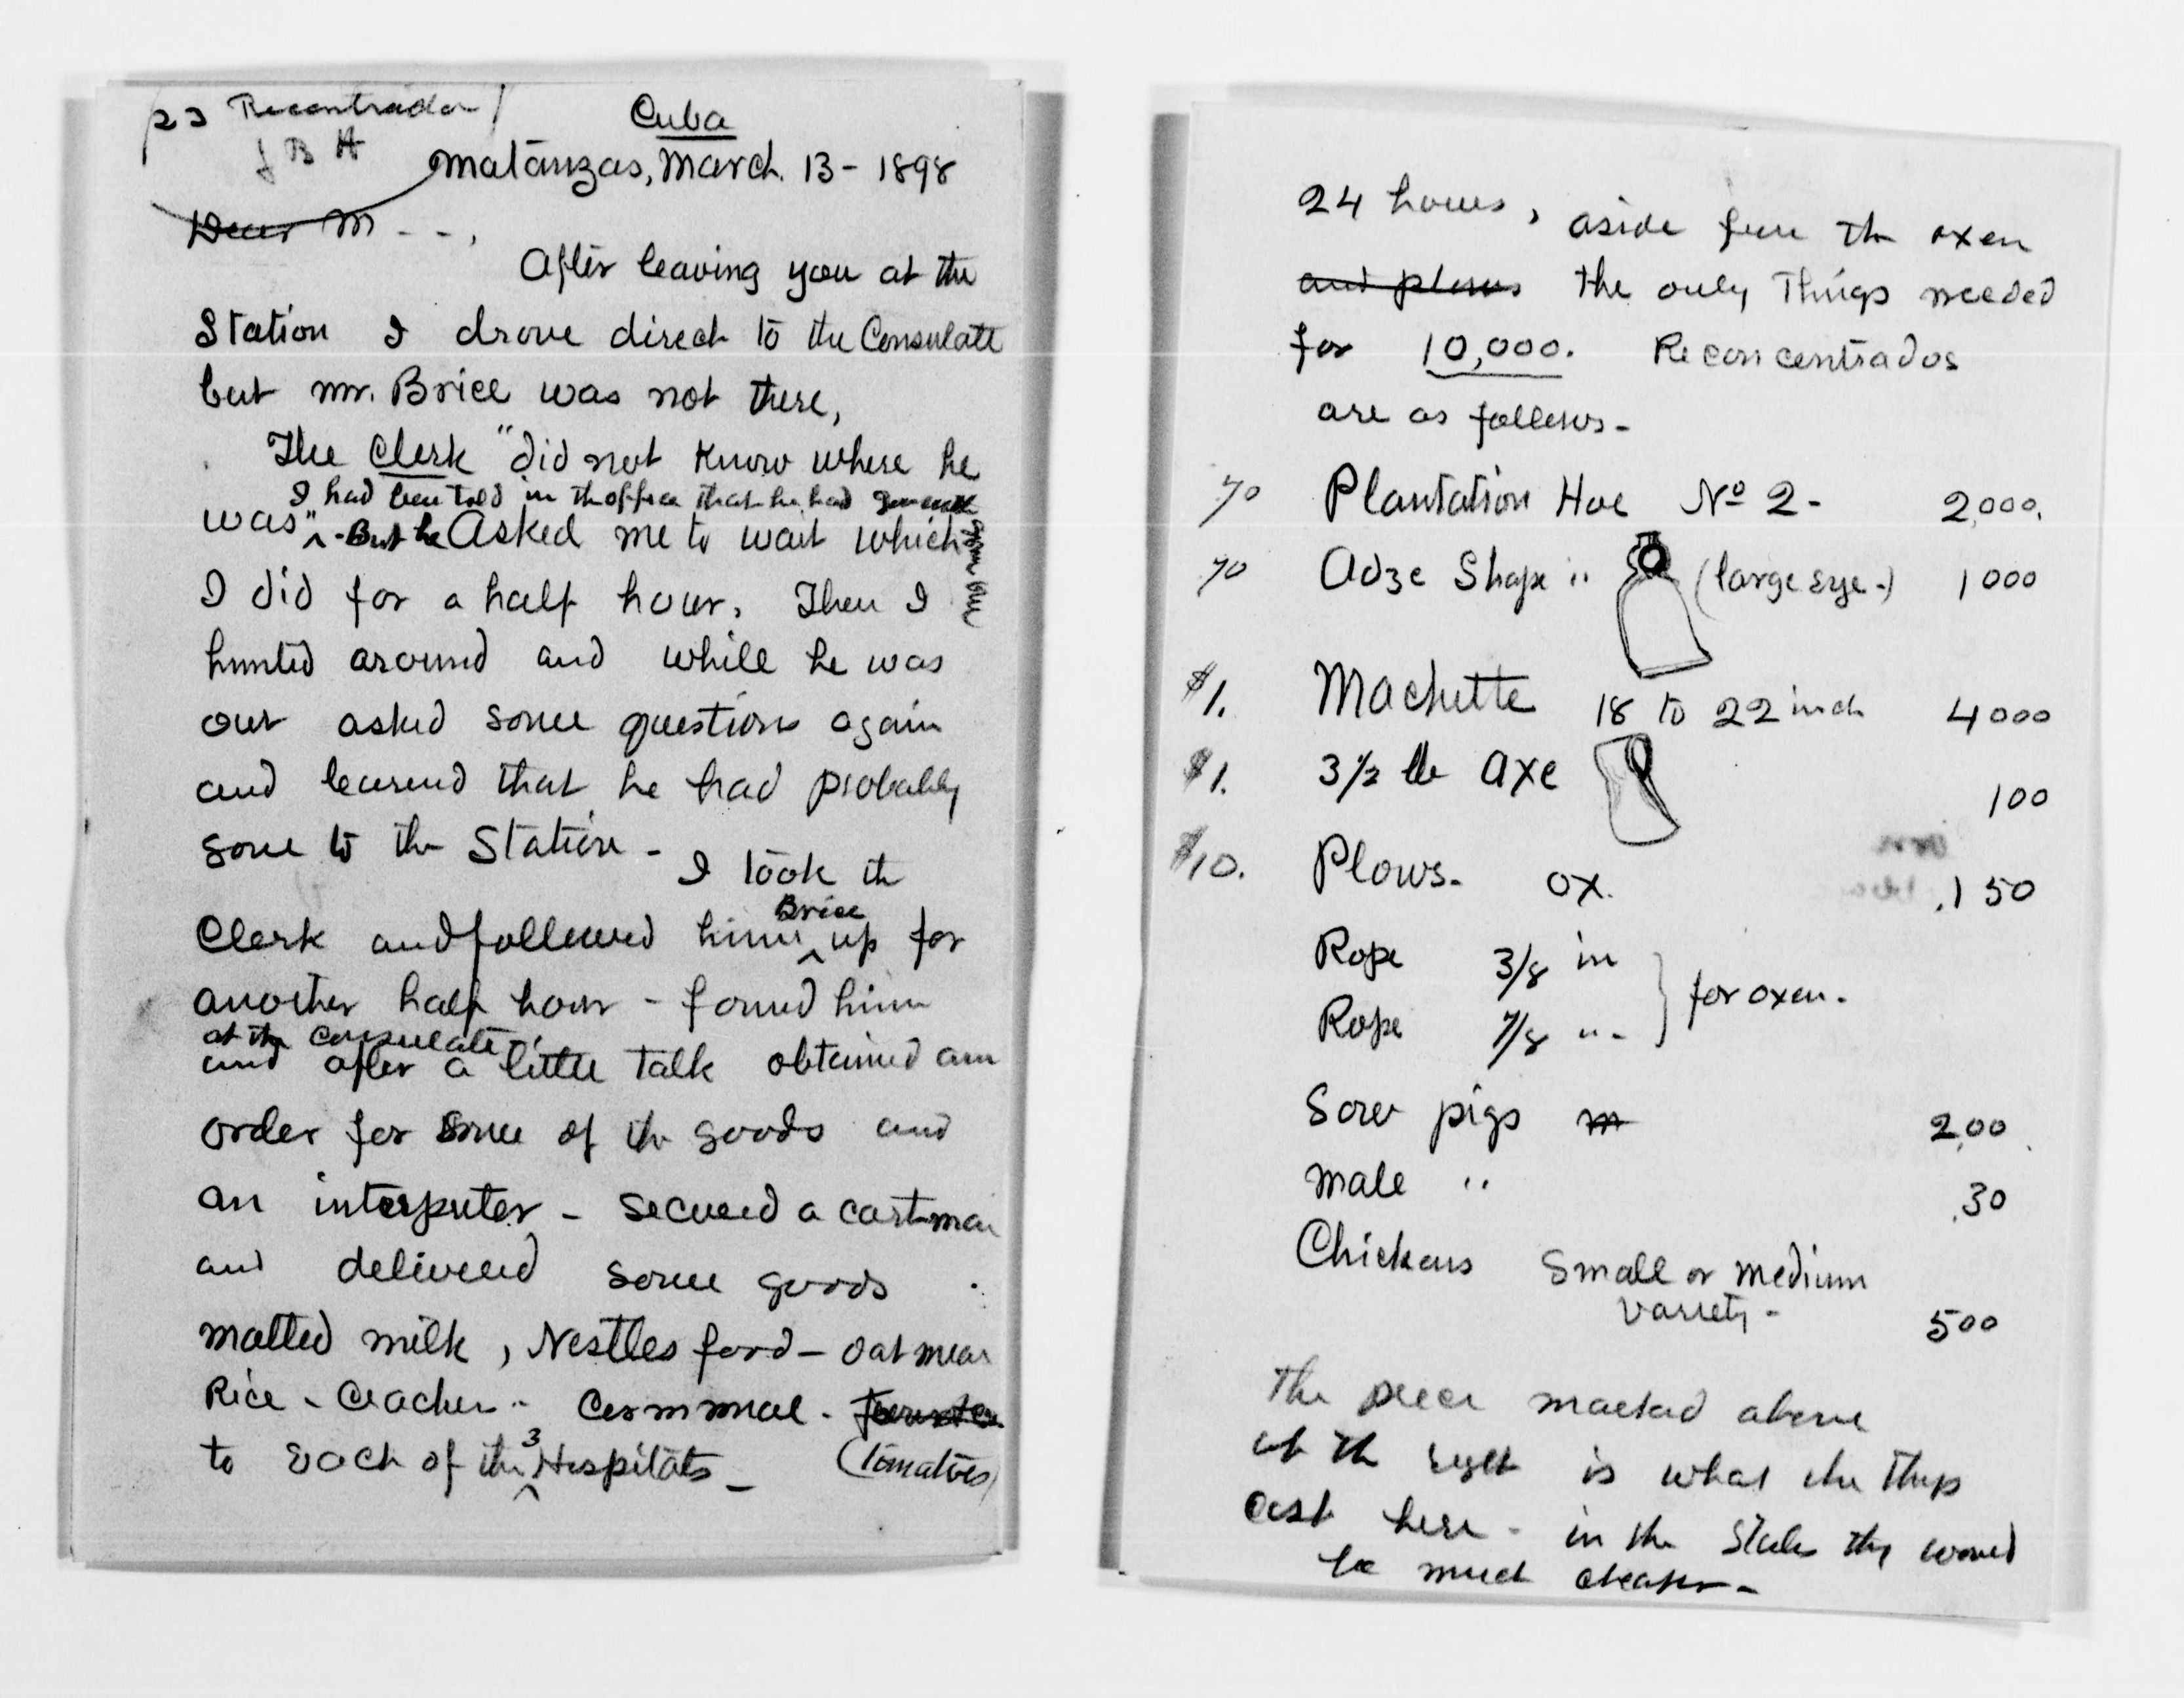 23 Recontrador
J B H
Cuba
Matanzas, March. 13 - 1898
Dear M - - ,
After leaving you at the
Station I drove direct to the Consulate
but Mr. Brice was not there,
The Clerk "did not know where he
I had been told in the office that he had gone out
was" - But he Asked me to wait which
I did for a half hour. Then I
hunted around and while he was
our asked some questions again
and learend that he had probably
gone to the Station -
I took the
Clerk and followed him Brice up for
another half hour - found him
at the Consulate
and after a little talk obtained an
order for some of the goods and
an interputer - secured a cartman
and delivered some goods
malted milk, Nestles food - oat meal
Rice - Cracker - Cornmeal -
to Each of the 3 Hospitals - (Tomatoes)
24 hours, aside from the oxen
and plows the only Things needed
for 10,000. Reconcentrados
are as follows -
70 Plantation Hoe No 2 - 2,000.
70 Adze Shape " (large eye -) 1000
$1. Machette 18 to 22 inch 4000
$1. 3 1/2 lb Axe 100
$10. Plows - ox. 150
Rope 3/8 in
for oxen.
Rope 7/8 "
Sow pigs 200
male " 30
Chickens Small or medium
variety - 500
The price marked above
at the right is what the things
cost here - in the States they would
be much cheaper -